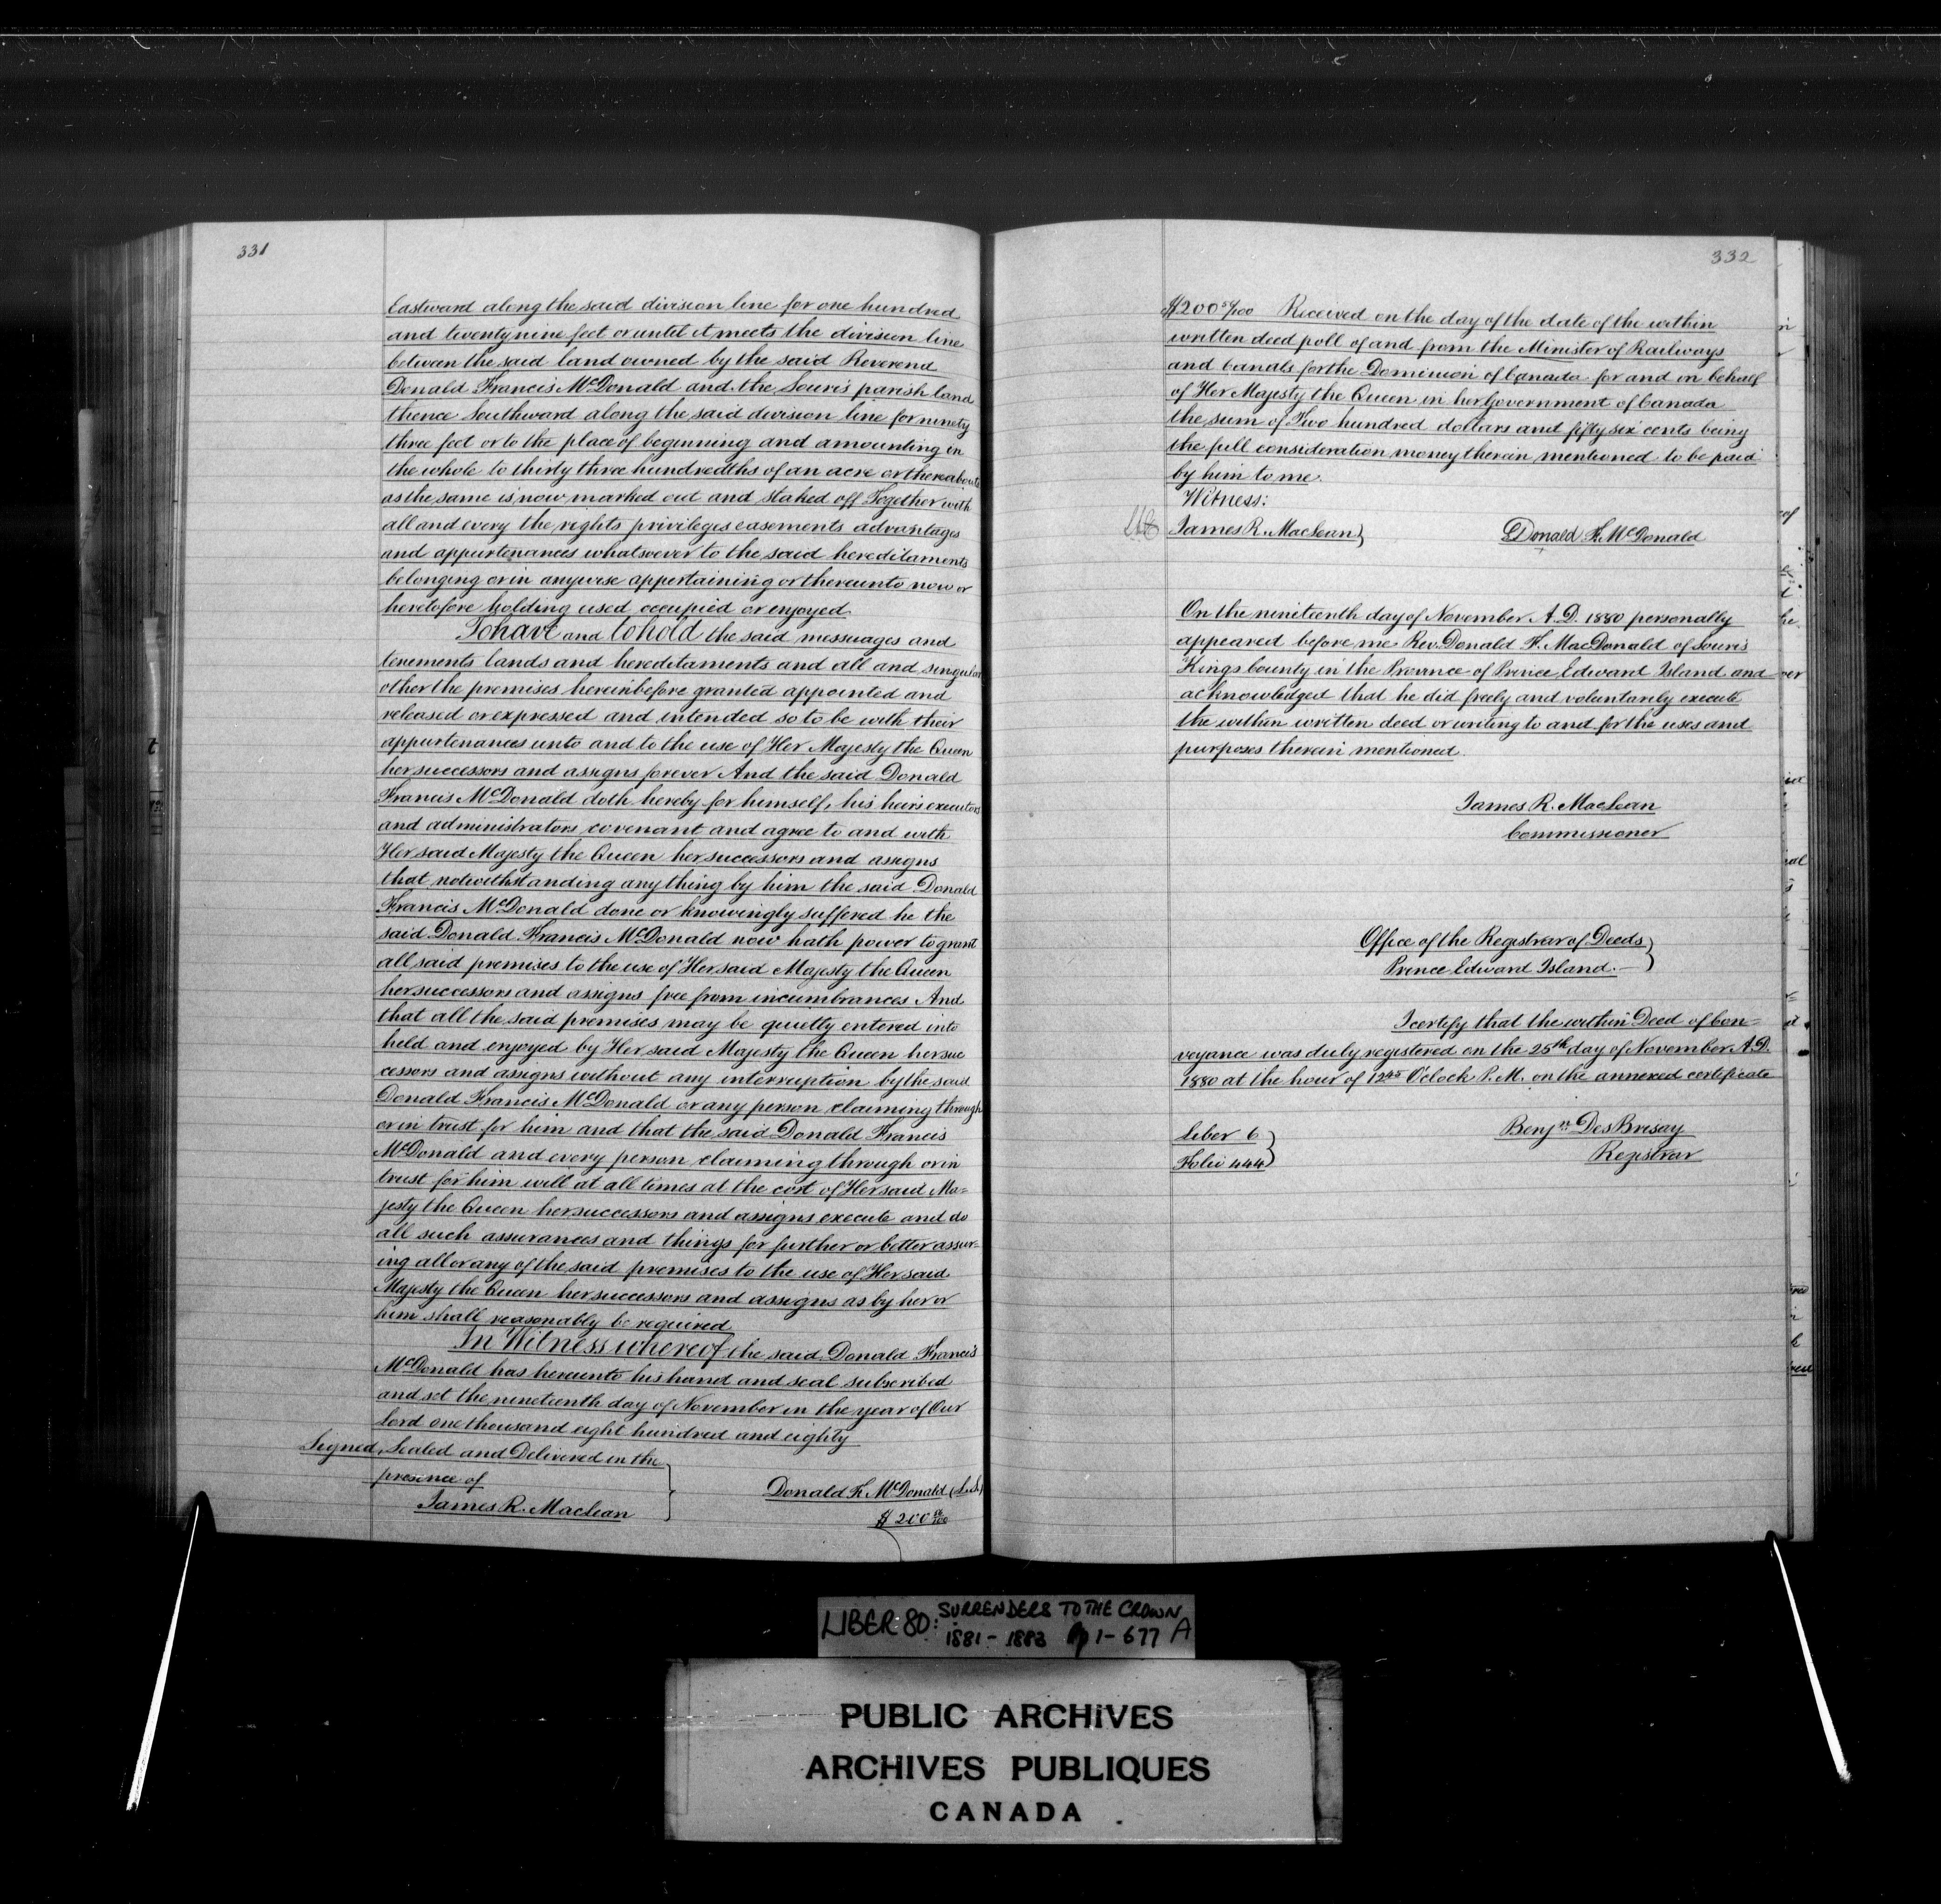 331
Eastward along the said division line for one hundred
and twenty nine feet or until it meets the division line
between the said land owned by the said Reverend
Donald Francis McDonald and the Souris parish land
thence Southward along the said division line for ninety
three feet or to the place of beginning and amounting in
the whole to thirty three hundredths of an acre or thereabouts
as the same is now marked out and staked off Together with
all and every the rights privileges easements advantages
and appurtenances whatsoever to the said hereditaments
belonging or in anywise appertaining or thereunto now or
heretofore holding used occupied or enjoyed.
To have and to hold the said messuages and
tenements lands and hereditaments and all and singular
other the premises hereinbefore granted appointed and
released or expressed and intended so to be with their
appurtenances unto and to the use of Her Majesty the Queen
her successors and assigns forever And the said Donald
Francis McDonald doth hereby for himself, his heirs executors
and administrators covenant and agree to and with
Her said Majesty the Queen her successors and assigns
that notwithstanding any thing by him the said Donald
Francis McDonald done or knowingly suffered he the
said Donald Francis McDonald now hath power to grant
all said premises to the use of Her said Majesty the Queen
her successors and assigns free from incumbrances And
that all the said premises may be quietly entered into
held and enjoyed by Her said Majesty the Queen her suc
cessors and assigns without any interruption by the said
Donald Francis McDonald or any person claiming through
or in trust for him and that the said Donald Francis
McDonald and every person claiming through or in
trust for him will at all times at the cost of Her said Ma=
jesty the Queen her successors and assigns execute and do
all such assurances and things for further or better assur=
ing all or any of the said premises to the use of Her said
Majesty the Queen her successors and assigns as by her or
him shall reasonably be required
In Witness whereof the said Donald Francis
McDonald has hereunto his hand and seal subscribed
and set the nineteenth day of November in the year of Our
Lord one thousand eight hundred and eighty
Signed, Sealed and Delivered in the
presence of
James R. MacLean
Donald F. McDonald (L.S.)
$200 56/100
332
$200 56/100 Received on the day of the date of the within
written deed poll of and from the Minister of Railways
and Canals for the Dominion of Canada for and on behalf
of Her Majesty the Queen in her Government of Canada
the sum of Two hundred dollars and fifty six cents being
the full consideration money therein mentioned to be paid
by him to me.
Witness:
James R. MacLean} Donald F. McDonald
On the nineteenth day of November A.D. 1880 personally
appeared before me Rev. Donald F. MacDonald of Souris
Kings County in the Province of Prince Edward Island and
acknowledged that he did freely and voluntarily execute
the within written deed or writing to and for the uses and
purposes therein mentioned.
James R. MacLean
Commissioner
Office of the Registrar of Deeds
Prince Edward Island.
I certify that the within Deed of Con=
veyance was duly registered on the 25th day of November A.D.
1880 at the hour of 12 45 O'clock P.M. on the annexed certificate
Liber 6
Folio 444
Benjn DesBrisay
Registrar
LIBER 80: SURRENDERS TO THE CROWN
1881-1883 pp 1-677 A
PUBLIC ARCHIVES
ARCHIVES PUBLIQUES
CANADA